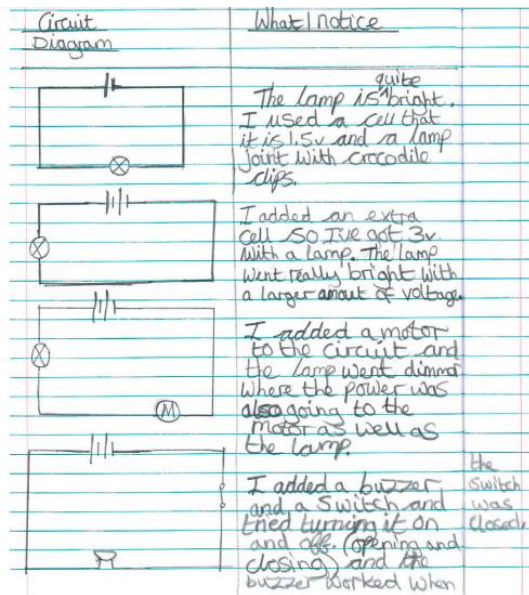 Circuit
Diagram
What I notice
quite
The lamp is ^ bright.
I used a cell that
it is 1.5v and a lamp
joint with crocodile
clips.
I added an extra
cell so I've got 3v.
with a lamp. The lamp
went really bright with
a larger amout of voltage.
I added a motor
to the circuit and
the lamp went dimmer
where the power was
also going to the
motor as well as
the lamp.
M
I added a buzzer
and a switch and
tried turning it on
and off. (opening and
closing) and the
buzzer worked when
the
switch
was
closed.